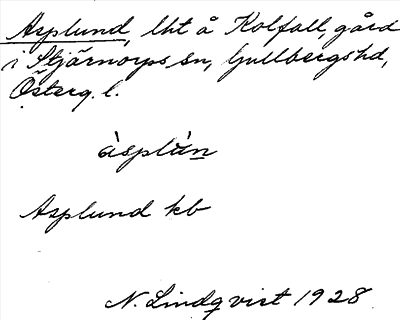 Asplund, lht å Kolfall, gård
i Stjärnorps sn, Gullbergs hd,
Österg. l.
àsplùn
Asplund kb
N. Lindqvist 1928